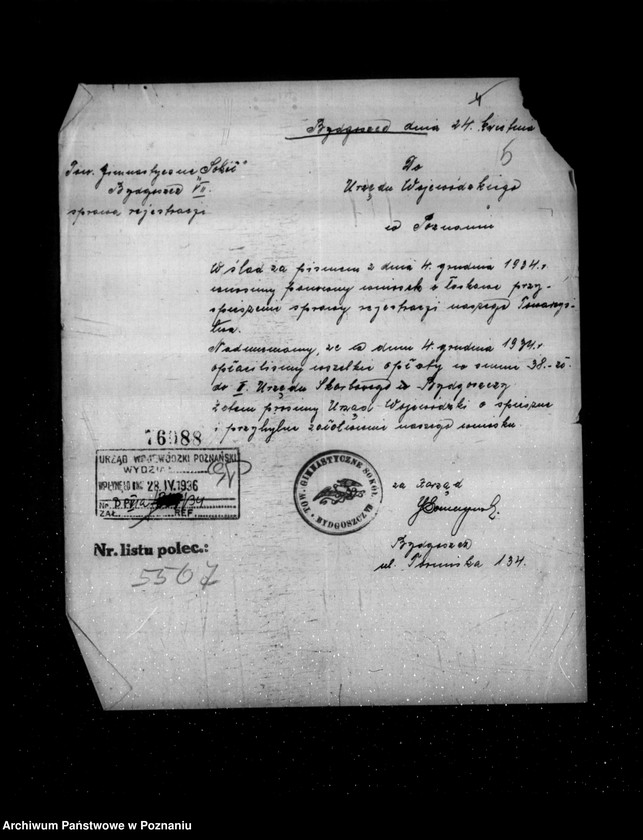 4
Bydgoszcz dnia 24. kwietnia
5
Tow. Gimnastyczne "Sokół"
Bydgoszcz VII.
sprawa rejestracji
Do
Urzędu Wojewódzkiego
w Poznaniu
W ślad za pismem z dnia 4. grudnia 1934 r.
wnosimy ponowny wniosek o łaskawe przy-
spieszenie sprawy rejestracji naszego Towarzys-
twa.
Nadmieniamy, że w dniu 4. grudnia 1934 r.
opłaciliśmy wszelkie opłaty w sumie 38.- zł.
do II. Urzędu Skarbowego w Bydgoszczy
Zatem prosimy Urząd Wojewódzki o spieszne
i przychylne załatwienie naszego wniosku.
76988
URZĄD WOJEWÓDZKI POZNAŃSKI
WYDZIAŁ
WPŁYNĘŁO DNIA 28.IV.1936
Nr.
ZAŁ. REF.
TOW. GIMNASTYCZNE SOKÓŁ
BYDGOSZCZ VII
za zarząd
Nr. listu polec.:
5567
Bydgoszcz
ul. Toruńska 134.
Archiwum Państwowe w Poznaniu